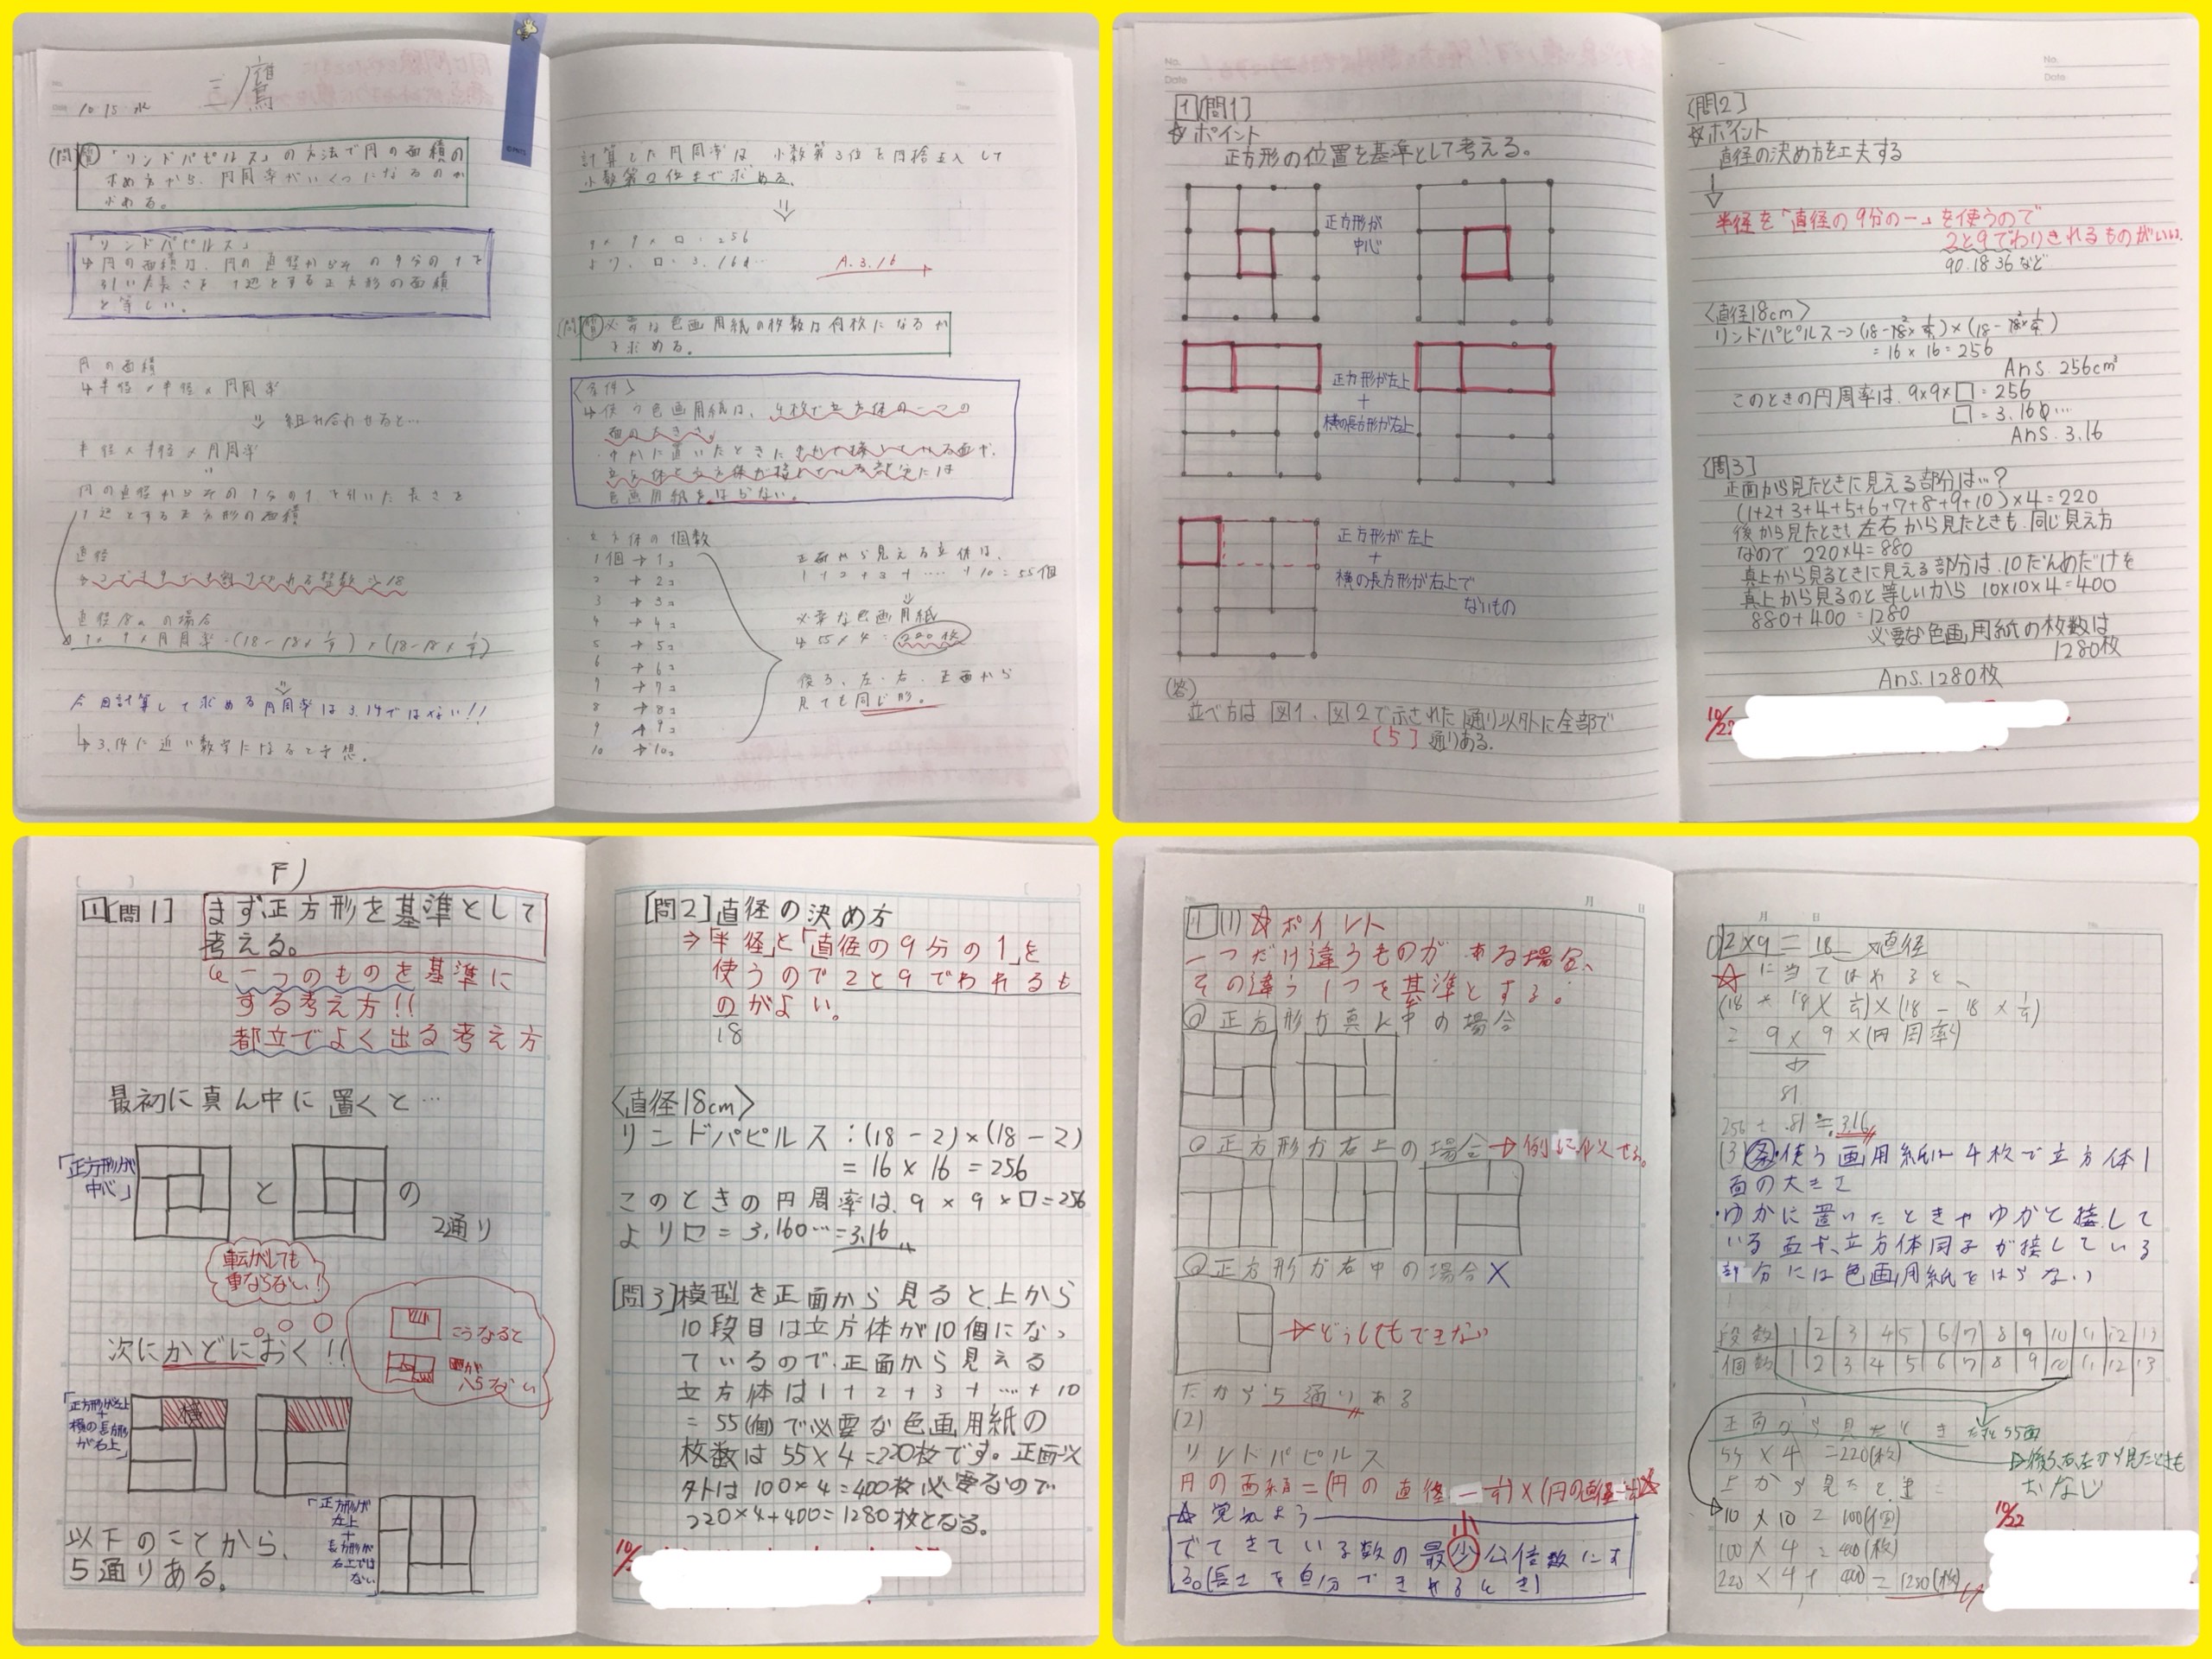 三鷹
10.15 水
(問)(質)「リンドパピルス」の方法で円の面積の
求め方から、円周率がいくつになるのか
求める。
「リンドパピルス」
↳円の面積は、円の直径からその9分の1を
引いた長さを1辺とする正方形の面積
と等しい。
円の面積
↳半径×半径×円周率
⇓ 組み合わせると…
半径×半径×円周率
〃
円の直径からその9分の1を引いた長さを
1辺とする正方形の面積
直径
→2でも9でも割りきれる整数⇒18
直径18cmの場合
9×9×円周率=(18-18×1/9)×(18-18×1/9)
⇓
今回計算して求める円周率は3.14ではない!!
↳3.14に近い数字になると予想。
計算した円周率は、小数第3位を四捨五入して
小数第2位まで求める。
⇓
9×9×□=256
より、□=3.160…
A.3.16
(問)(質)必要な色画用紙の枚数は何枚になるか
を求める。
〈条件〉
↳使う色画用紙は、4枚で立方体の一つの
面の大きさ。
・ゆかに置いたときにゆかで接している面や、
立方体と立方体が接している部分には
色画用紙をはらない。
立方体の個数
1個→1コ
2→2コ
3→3コ
4→4コ
5→5コ
6→6コ
7→7コ
8→8コ
9→9コ
10→10コ
正面から見える立体は、
1+2+3+……+10=55個
⇓
必要な色画用紙
↳55×4=220枚
後ろ、左・右、正面から
見ても同じ形。
No.
Date
1[問1]
☆ポイント
正方形の位置を基準として考える。
正方形が
中心
正方形が左上
+
横の長方形が右上
正方形が左上
+
横の長方形が右上で
ないもの
(答)
並べ方は図1、図2で示された1通り以外に全部で
[5]通りある。
No.
Date
[問2]
☆ポイント
直径の決め方を工夫する
↓
半径を「直径の9分の一」を使うので
2と9でわりきれるものがいい。
90.18 36など
〈直径18cm〉
リンドパピルス→(18-18×1/9)×(18-18×1/9)
=16×16=256
Ans.256cm²
このときの円周率は.9×9×□=256
□=3.160…
Ans.3.16
[問3]
正面から見たときに見える部分は…?
(1+2+3+4+5+6+7+8+9+10)×4=220
後から見たとき、左右から見たときも、同じ見え方
なので220×4=880
真上から見るときに見える部分は.10だんめだけを
真上から見るのと等しいから10×10×4=400
880+400=1280
必要な色画用紙の枚数は
1280枚
Ans.1280枚
10/22
1[問1]
まず、正方形を基準として
考える。
一つのものを基準に
する考え方!!
都立でよく出る考え方
最初に真ん中に置くと…
「正方形が
中心」
と
の
2通り
転がしても
重ならない!
次にかどにおく!!
こうなると
が
入らない
「正方形が左上
+
横の長方形
が右上」
横
「正方形が
左上
+
長方形が
右上では
ない」
以下のことから、
5通りある。
[問2]直径の決め方
⇒「半径」と「直径の9分の1」を
使うので2と9でわれるも
のがよい。
18
〈直径18cm〉
リンドパピルス:(18-2)×(18-2)
=16×16=256
このときの円周率は.9×9×□=256
より□=3.160…=3.16
[問3]模型を正面から見ると、上から
10段目は立方体が10個になっ
ているので、正面から見える
立方体は1+2+3+…+10
=55(個)で必要な色画用紙の
枚数は55×4=220枚です。正面以
外は100×4=400枚必要なので
220×4+400=1280枚となる。
10/
月 日
1(1)☆ポイント
一つだけ違うものがある場合、
その違う1つを基準とする。
◎正方形が真ん中の場合
◎正方形が右上の場合→例に似せる。
◎正方形が右中の場合X
→どうしてもできない
だから5通りある
(2)
リンドパピルス
☆覚えよう
でてきている数の最少公倍数にす
る。(長さを自分できめるとき)
月 日
2×9=18→直径
☆に当てはめると、
(18-18×1/9)×(18-18×1/9)
=9×9×(円周率)
81
256÷81≒3.16
(3)条・使う画用紙は4枚で立方体1
面の大きさ
・ゆかに置いたときゆかと接して
いる面や、立方体同士が接している
部分には色画用紙をはらない
段数 1 2 3 4 5 6 7 8 9 10 11 12 13
個数 1 2 3 4 5 6 7 8 9 10 11 12 13
正面から見たとき 55面
55×4=220(枚)
→後ろ右左から見たときも
おなじ
上から見たとき
10×10=100(個)
100×4=400(枚)
220×4+400=1280(枚)
10/22